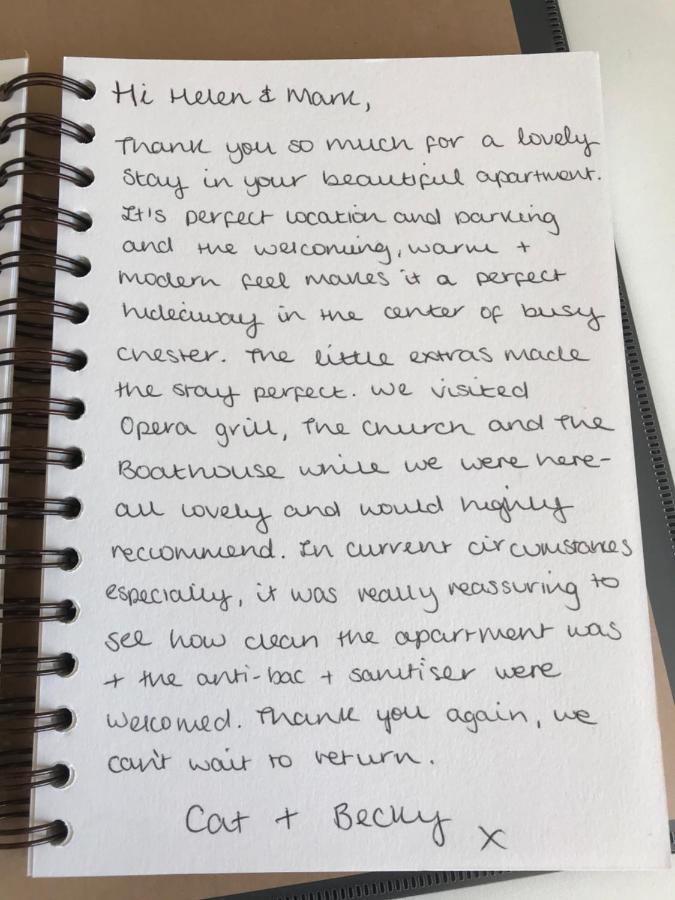 Hi Helen & Mark,
Thank you so much for a lovely
stay in your beautiful apartment.
It's perfect location and parking
and the welcoming, warm +
modern feel makes it a perfect
hideaway in the center of busy
chester. The little extras made
the stay perfect. We visited
Opera grill, The Church and The
Boathouse while we were here-
all lovely and would highly
reccommend. In current circumstances
especially, it was really reassuring to
see how clean the apartment was
+ the anti-bac + sanitiser were
welcomed. Thank you again, we
can't wait to return.
Cat + Becky x